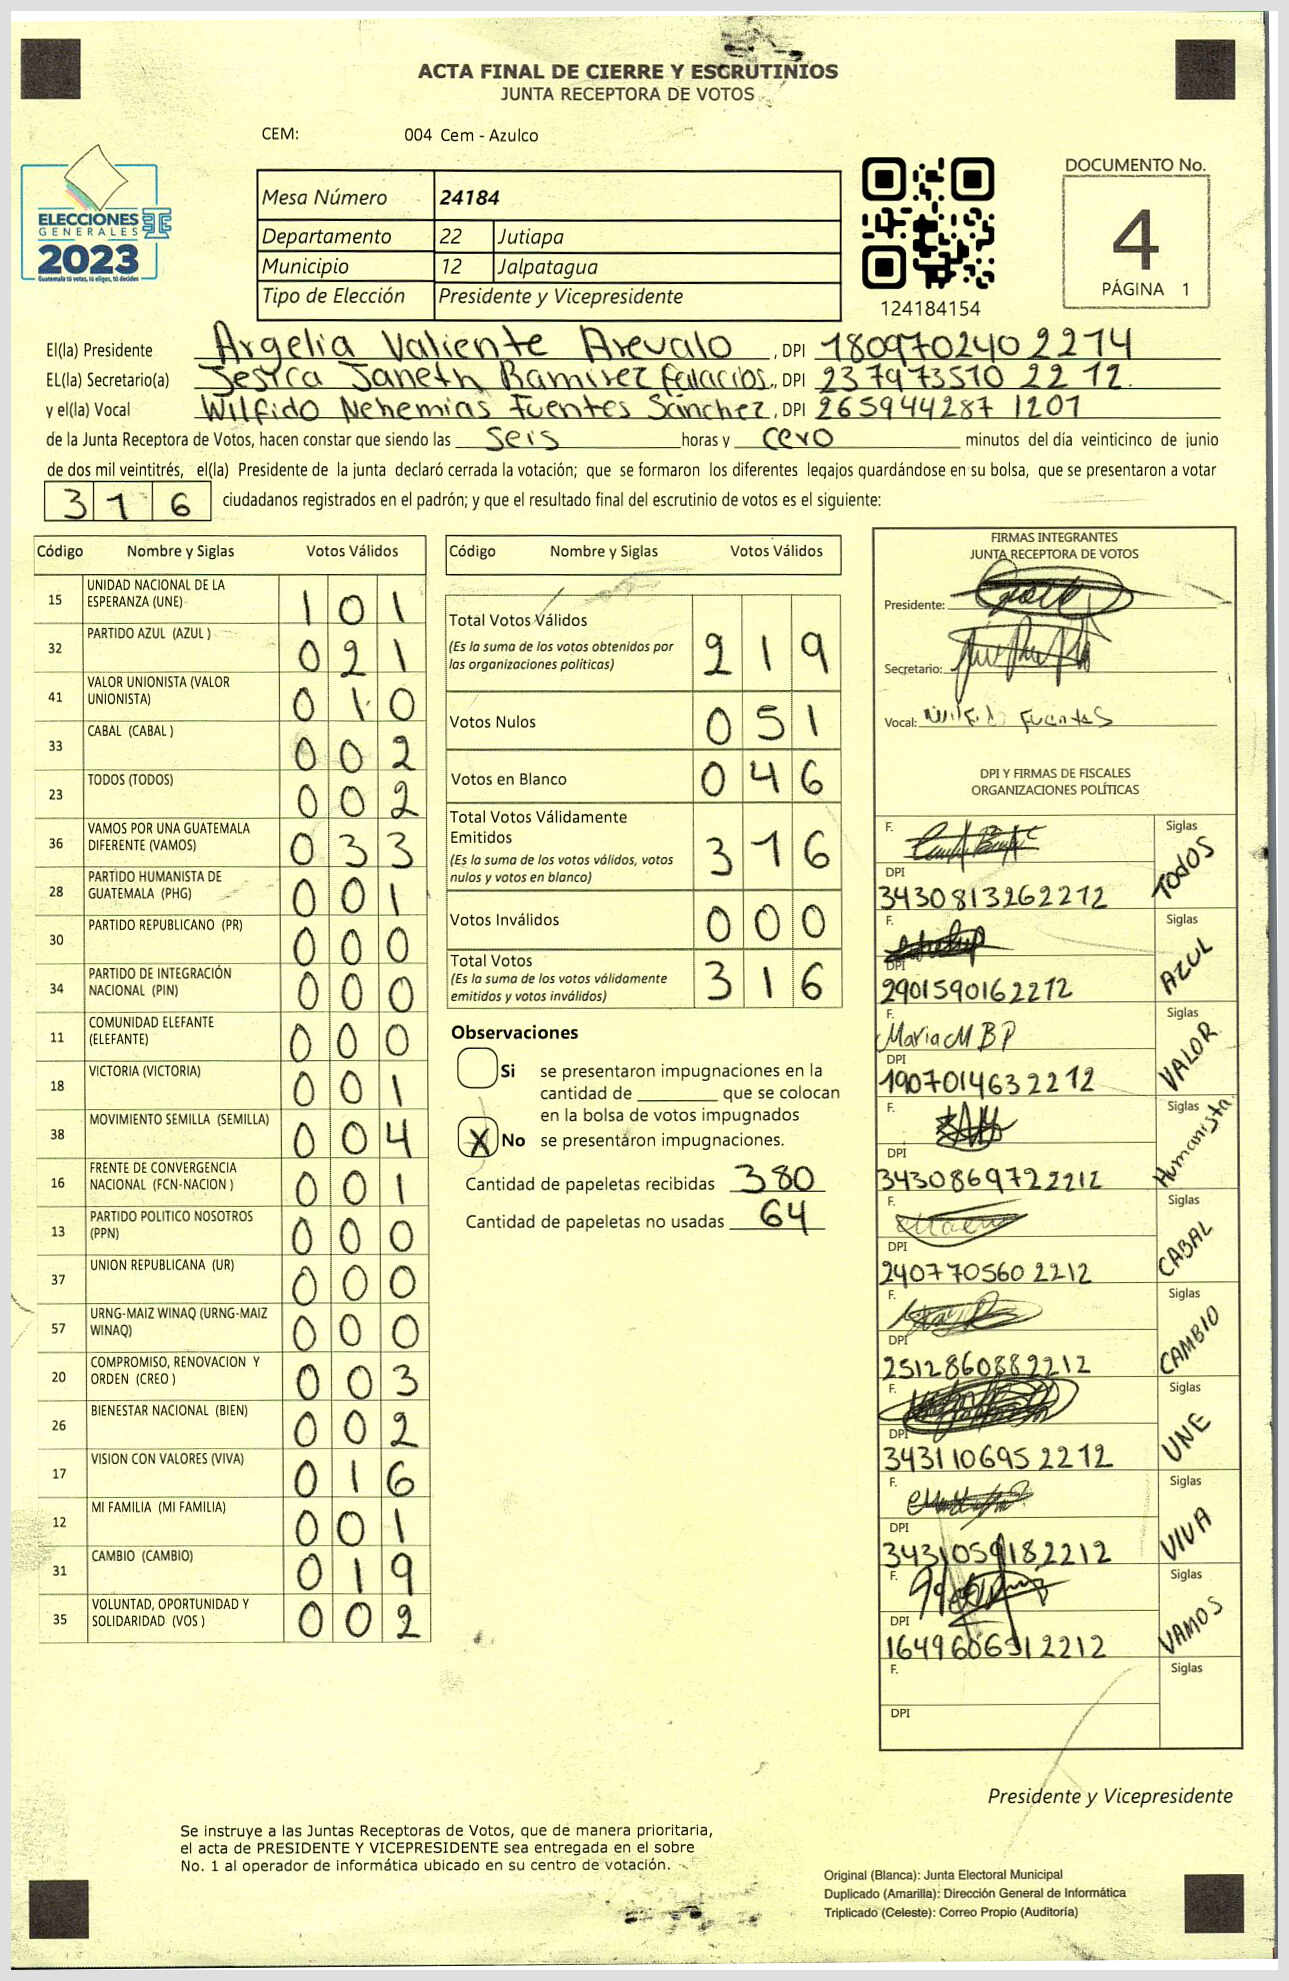 ACTA FINAL DE CIERRE Y ESCRUTINIOS
JUNTA RECEPTORA DE VOTOS
CEM: 004 Cem - Azulco
ELECCIONES
GENERALES
2023
Guatemala tú votas, tú eliges, tú decides
Mesa Número 24184
Departamento 22 Jutiapa
Municipio 12 Jalpatagua
Tipo de Elección Presidente y Vicepresidente
124184154
DOCUMENTO No.
4
PÁGINA 1
El(la) Presidente Argelia Valiente Arevalo, DPI 180970240 2214
EL(la) Secretario(a) Jesica Janeth Ramirez Palacios, DPI 237973510 2212.
y el(la) Vocal Wilfido Nehemias Fuentes Sánchez, DPI 265944287 1201
de la Junta Receptora de Votos, hacen constar que siendo las seis horas y cero minutos del día veinticinco de junio
de dos mil veintitrés, el(la) Presidente de la junta declaró cerrada la votación; que se formaron los diferentes legajos guardándose en su bolsa, que se presentaron a votar
316 ciudadanos registrados en el padrón; y que el resultado final del escrutinio de votos es el siguiente:
Código Nombre y Siglas Votos Válidos
15 UNIDAD NACIONAL DE LA ESPERANZA (UNE) 101
32 PARTIDO AZUL (AZUL ) 021
41 VALOR UNIONISTA (VALOR UNIONISTA) 010
33 CABAL (CABAL ) 002
23 TODOS (TODOS) 002
36 VAMOS POR UNA GUATEMALA DIFERENTE (VAMOS) 033
28 PARTIDO HUMANISTA DE GUATEMALA (PHG) 001
30 PARTIDO REPUBLICANO (PR) 000
34 PARTIDO DE INTEGRACIÓN NACIONAL (PIN) 000
11 COMUNIDAD ELEFANTE (ELEFANTE) 000
18 VICTORIA (VICTORIA) 001
38 MOVIMIENTO SEMILLA (SEMILLA) 004
16 FRENTE DE CONVERGENCIA NACIONAL (FCN-NACION ) 001
13 PARTIDO POLITICO NOSOTROS (PPN) 000
37 UNION REPUBLICANA (UR) 000
57 URNG-MAIZ WINAQ (URNG-MAIZ WINAQ) 000
20 COMPROMISO, RENOVACION Y ORDEN (CREO ) 003
26 BIENESTAR NACIONAL (BIEN) 002
17 VISION CON VALORES (VIVA) 016
12 MI FAMILIA (MI FAMILIA) 001
31 CAMBIO (CAMBIO) 019
35 VOLUNTAD, OPORTUNIDAD Y SOLIDARIDAD (VOS ) 002
Código Nombre y Siglas Votos Válidos
Total Votos Válidos 219
(Es la suma de los votos obtenidos por
las organizaciones políticas)
Votos Nulos 051
Votos en Blanco 046
Total Votos Válidamente
Emitidos 316
(Es la suma de los votos válidos, votos
nulos y votos en blanco)
Votos Inválidos 000
Total Votos 316
(Es la suma de los votos válidamente
emitidos y votos inválidos)
Observaciones
Si se presentaron impugnaciones en la
cantidad de ________ que se colocan
en la bolsa de votos impugnados
X No se presentaron impugnaciones.
Cantidad de papeletas recibidas 380
Cantidad de papeletas no usadas 64
FIRMAS INTEGRANTES
JUNTA RECEPTORA DE VOTOS
Presidente:
Secretario:
Vocal: Wilfido Fuentes
DPI Y FIRMAS DE FISCALES
ORGANIZACIONES POLÍTICAS
F. Siglas TODOS
DPI
3430813262212
F. Siglas AZUL
DPI
2901590162212
F. Maria M B P Siglas VALOR
DPI
1907014632212
F. Siglas Humanista
DPI
3430869722212
F. Siglas CABAL
DPI
240770560 2212
F. Siglas CAMBIO
DPI
2512860882212
F. Siglas UNE
DPI
343110695 2212
F. Siglas VIVA
DPI
3431059182212
F. Siglas VAMOS
DPI
1649606512212
F. Siglas
DPI
Presidente y Vicepresidente
Se instruye a las Juntas Receptoras de Votos, que de manera prioritaria,
el acta de PRESIDENTE Y VICEPRESIDENTE sea entregada en el sobre
No. 1 al operador de informática ubicado en su centro de votación.
Original (Blanca): Junta Electoral Municipal
Duplicado (Amarilla): Dirección General de Informática
Triplicado (Celeste): Correo Propio (Auditoría)